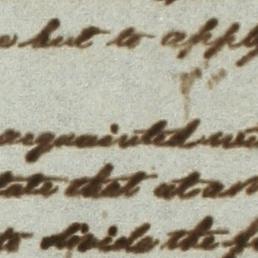 but to apply
acquainted
state that at a
to divide the